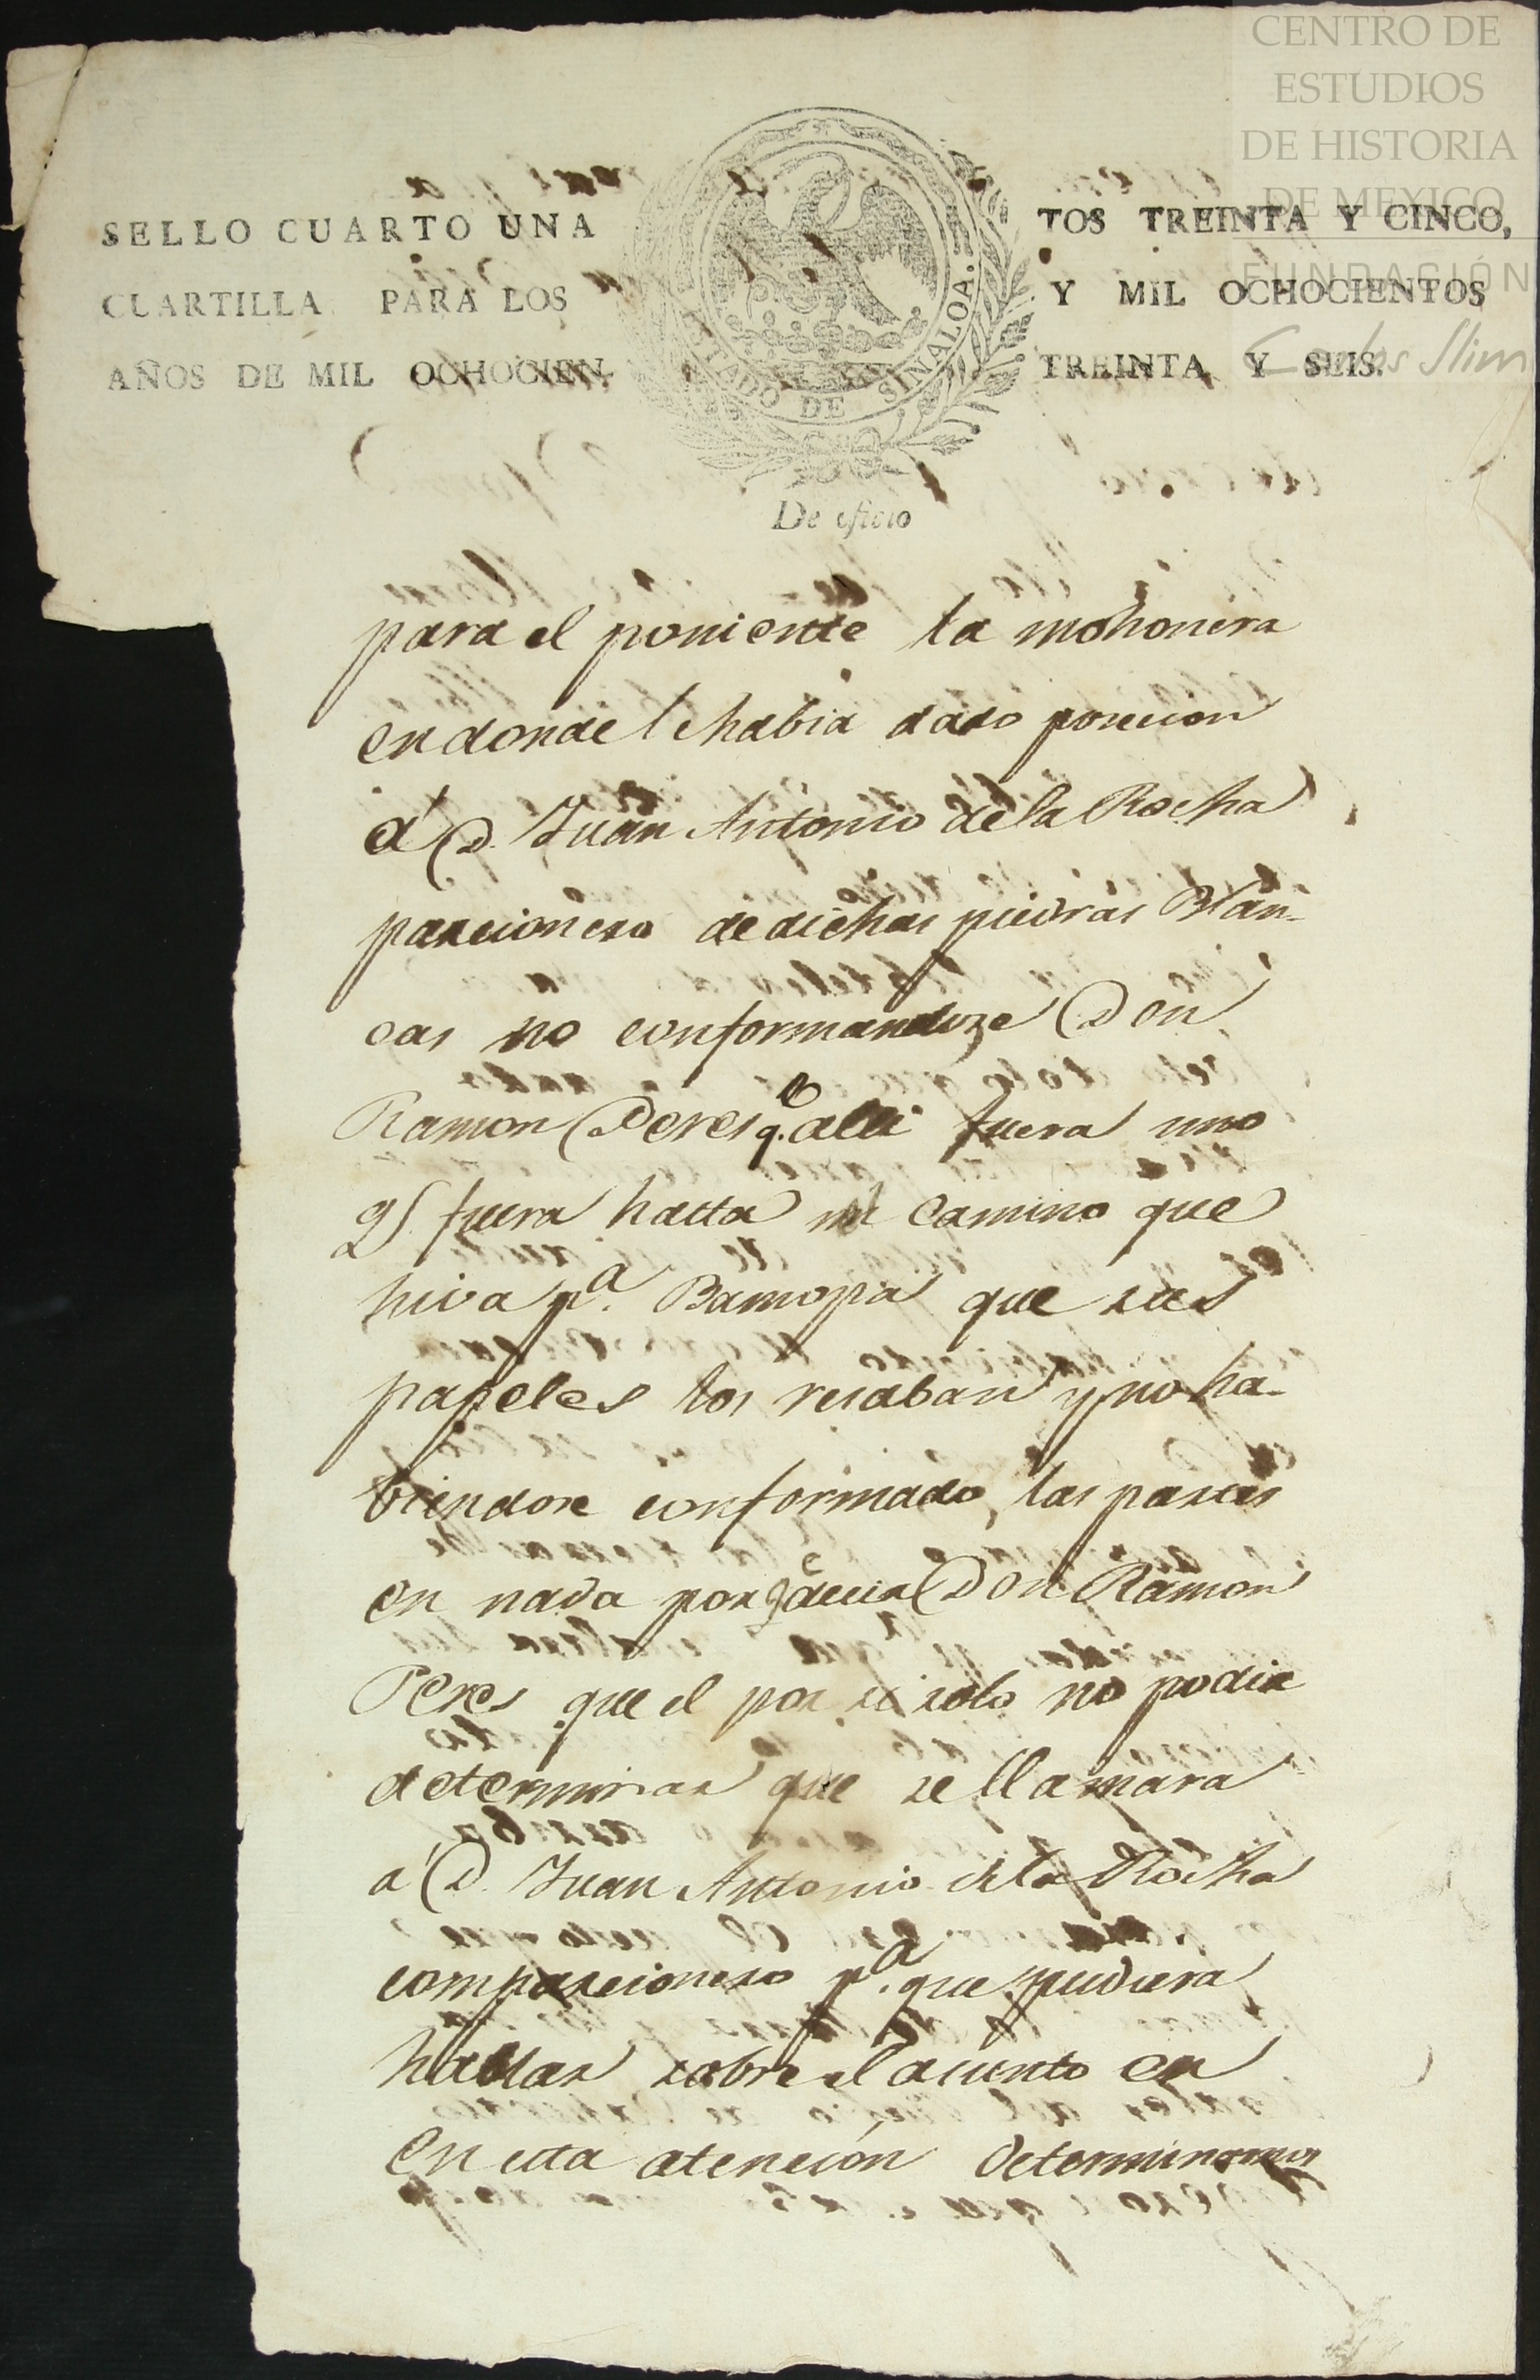 CENTRO DE
ESTUDIOS
DE HISTORIA
DE MEXICO
FUNDACIÓN
Carlos Slim
SELLO CUARTO UNA
CUARTILLA PARA LOS
AÑOS DE MIL OCHOCIEN-
TOS TREINTA Y CINCO,
Y MIL OCHOCIENTOS
TREINTA Y SEIS.
ESTADO DE SINALOA.
De oficio
para el poniente la mohonera
en donde le habia dado poscion
á D. Juan Antonio de la Rocha
parcionero de dichas piedras Blan-
cas no conformandoze Don
Ramon Peres q.e alli fuera uno
fuera hasta el camino que
hiva p.a Bamopa que sus
papeles los resaban y no ha-
biendose conformado, las partes
en nada por q.e decia Don Ramon
Peres que el por si solo no podia
determinar que se llamara
a D. Juan Antonio de la Rocha
comparcionero p.a que pudiera
hablar sobre el asunto en
en esta atención determinamos